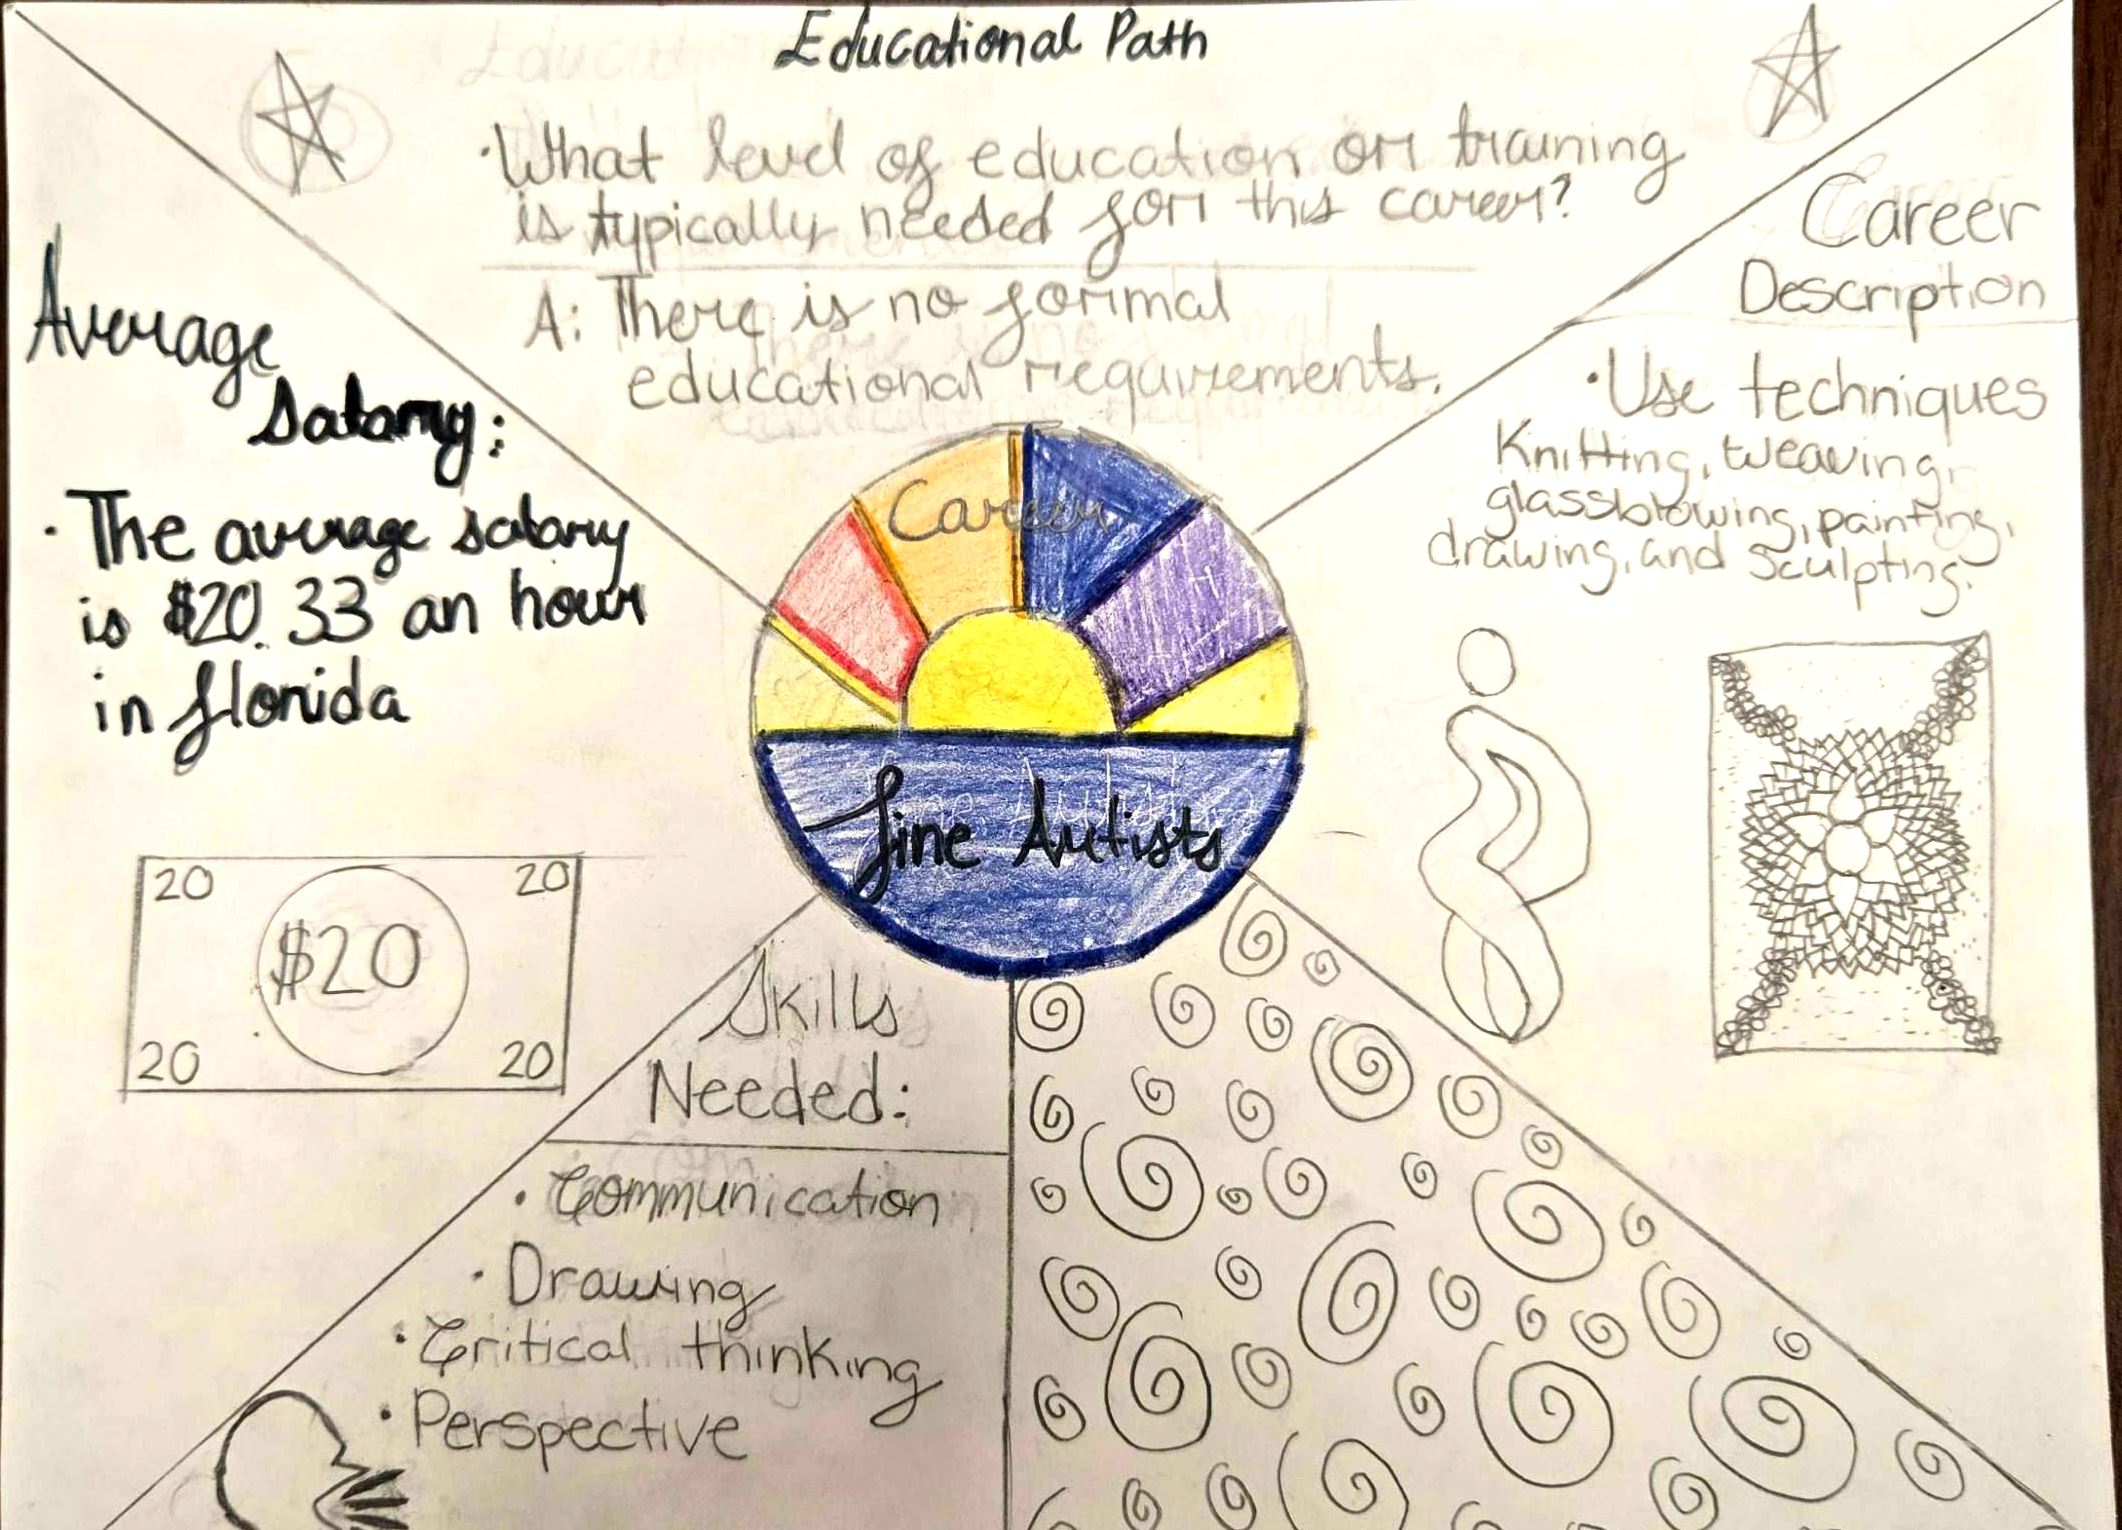 Educational Path
·What level of education or training
is typically needed for this career?
A: There is no formal
educational requirements.
Average
Salary:
· The average salary
is $20.33 an hour
in florida
20 20
$20
20 20
Career
Description
·Use techniques
Knitting, weaving,
glassblowing, painting,
drawing, and sculpting.
Career
fine Artists
Skills
Needed:
· Communication
· Drawing
· Critical thinking
· Perspective